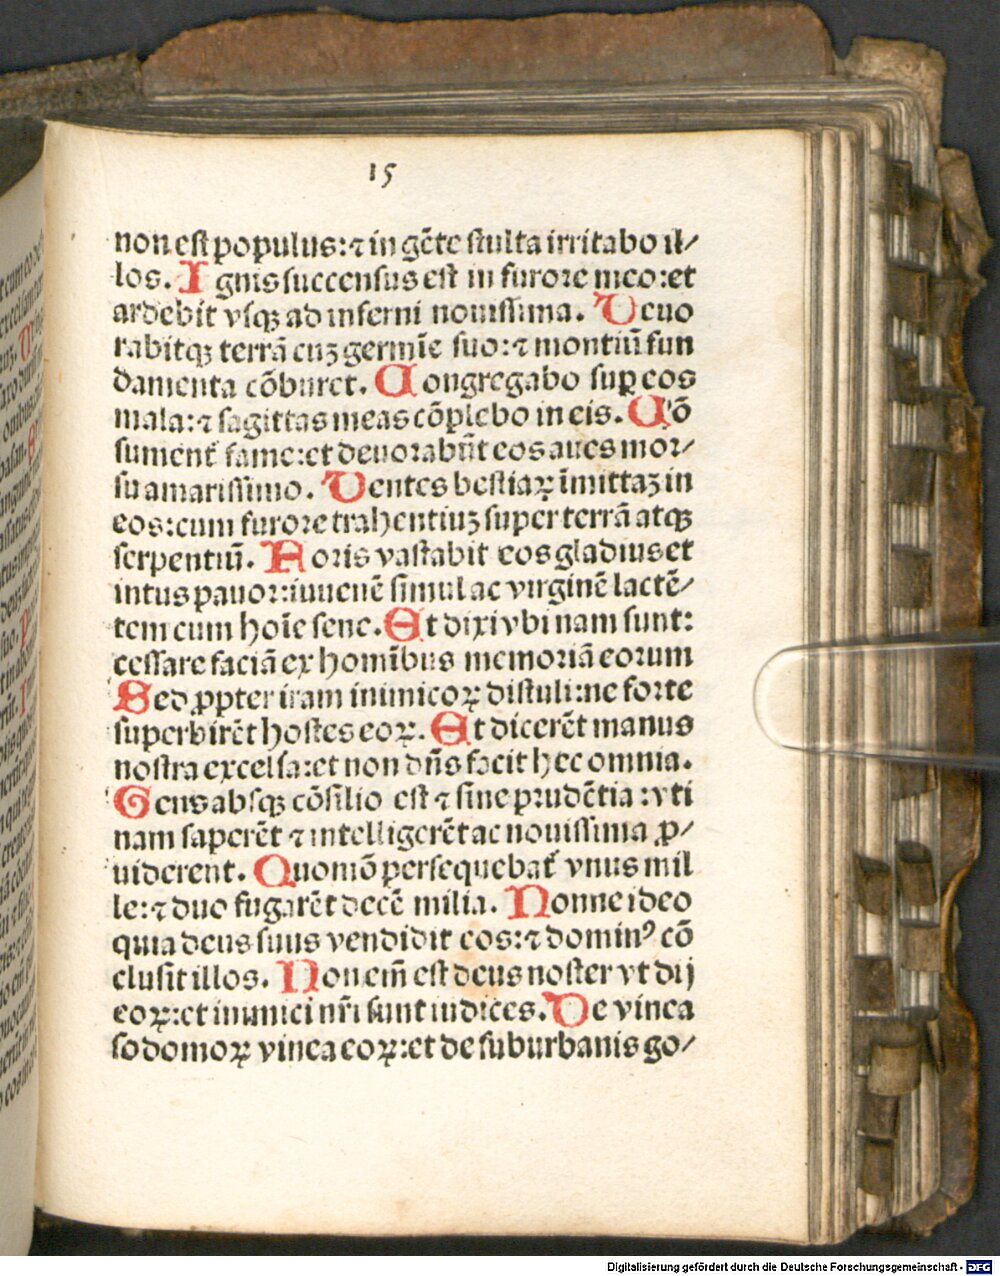 15
non est populus:⁊ in gẽte stulta irritabo il/
los. Ignis succensus est in furore meo:et
ardebit vsqꝫ ad inferni nouissima. Deuo
rabitqꝫ terrã cuꝫ germĩe suo:⁊ montiũ fun
damenta cõburet. Congregabo suꝑ eos
mala:⁊ sagittas meas cõplebo in eis. Cõ
sument᷑ fame:et deuorabũt eos aues mor/
su amarissimo. Dentes bestiaꝝ ĩmittaꝫ in
eos:cum furore trahentiuꝫ super terrã atqꝫ
serpentiũ. Foris vastabit eos gladius et
intus pauor:iuuenẽ simul ac virginẽ lactẽ/
tem cum hoĩe sene. Et dixi vbi nam sunt:
cessare faciã ex homĩbus memoriã eorum
Sed ꝓpter iram inimicoꝝ distuli:ne forte
superbirẽt hostes eoꝝ. Et dicerẽt manus
nostra excelsa:et non dñs fecit hec omnia.
Gens absqꝫ cõsilio est ⁊ sine prudẽtia:vti
nam saperẽt ⁊ intelligerẽt ac nouissima ꝓ/
uiderent. Quomõ persequebat᷑ vnus mil
le:⁊ duo fugarẽt decẽ milia. Nonne ideo
quia deus suus vendidit eos:⁊ dominꝰ cõ
clusit illos. Non em̃ est deus noster vt dij
eoꝝ:et inimici nr̃i sunt iudices. De vinea
sodomoꝝ vinea eoꝝ:et de suburbanis go/
Digitalisierung gefördert durch die Deutsche Forschungsgemeinschaft - DFG